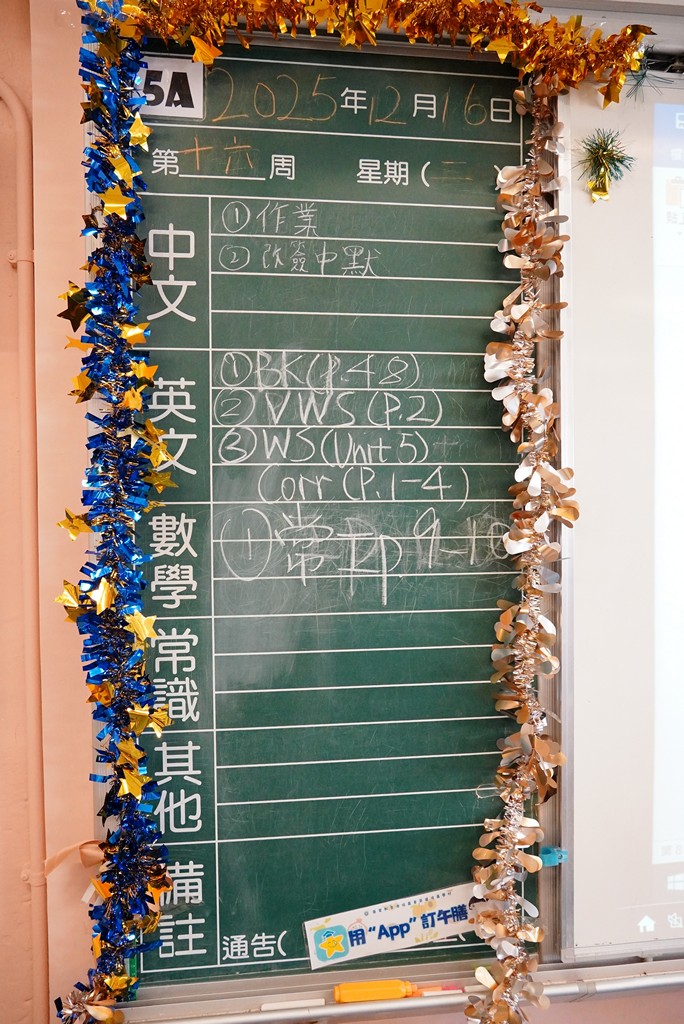 5A 2025年12月16日
第十六周 星期(二)
中文
① 作業
② 改簽中默
英文
① BK(P.48)
② VWS(P.2)
③ WS(Unit 5)
Corr (P.1-4)
數學
① 常 P.9-10
常識
其他
備註
通告(
用“App”訂午膳